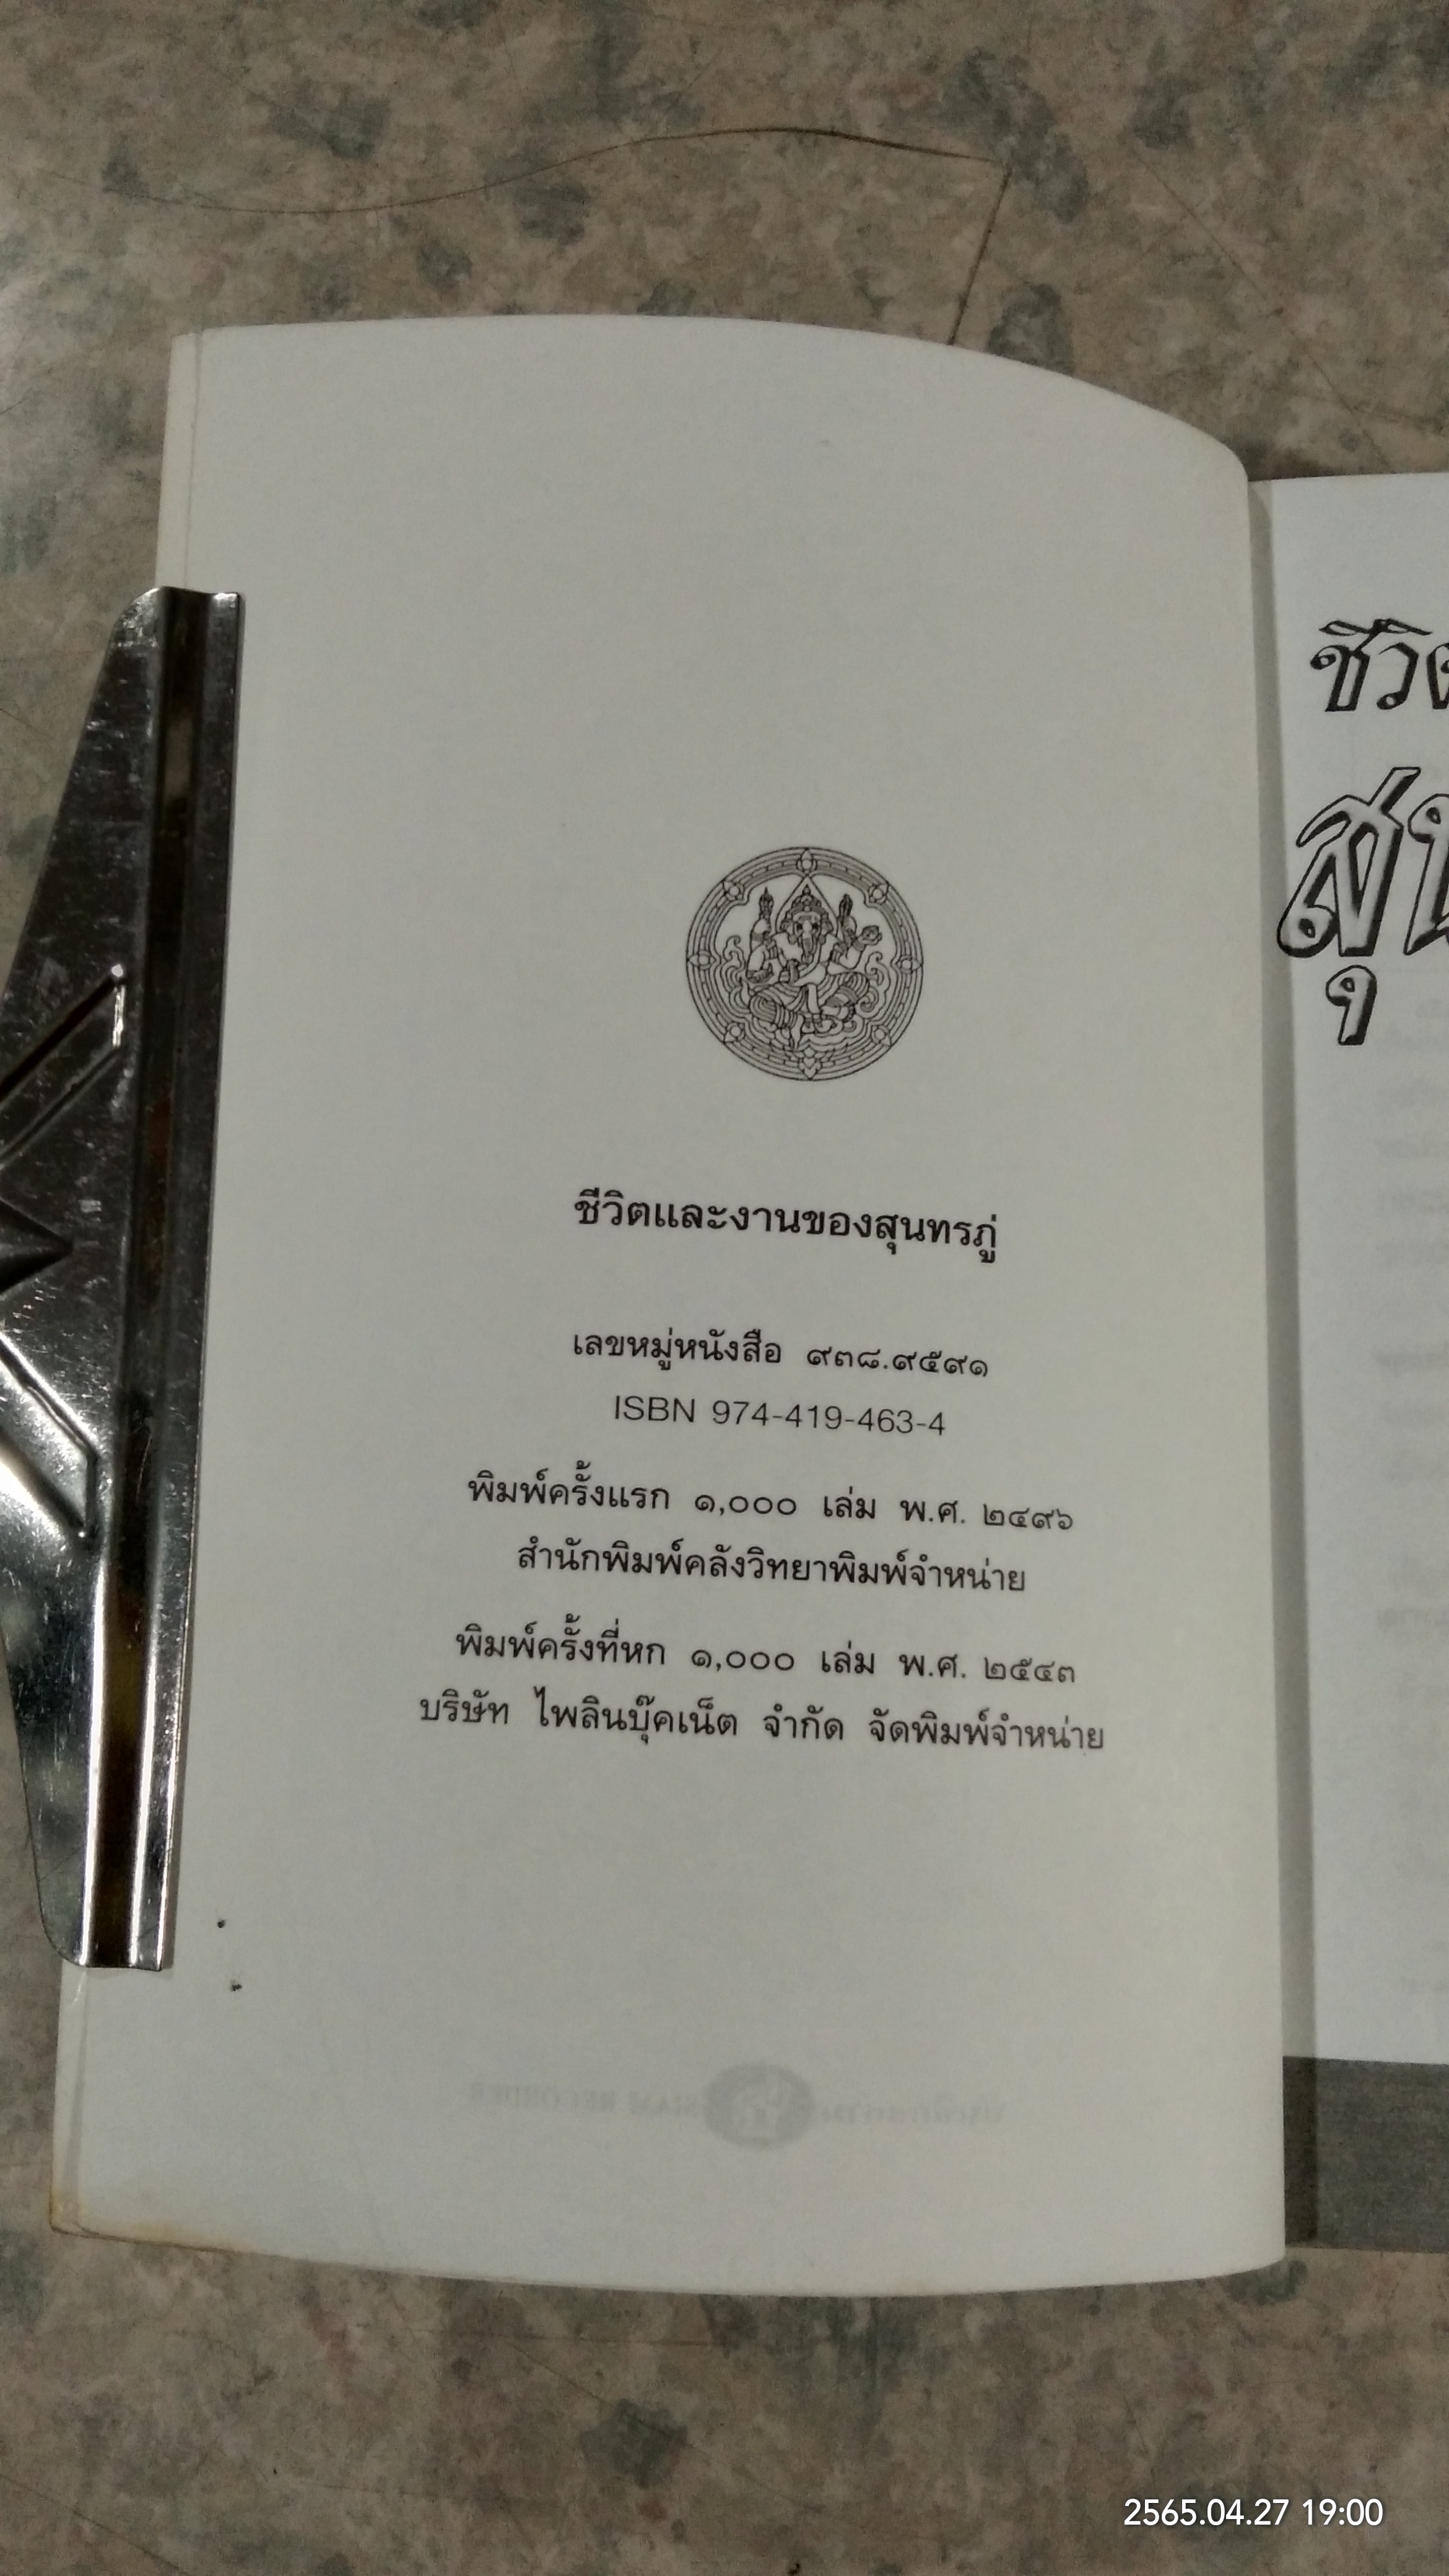 ชีวิตและงานของสุนทรภู่
เลขหมู่หนังสือ ๙๓๘.๙๕๙๑
ISBN 974-419-463-4
พิมพ์ครั้งแรก ๑,๐๐๐ เล่ม พ.ศ. ๒๔๙๖
สำนักพิมพ์คลังวิทยาพิมพ์จำหน่าย
พิมพ์ครั้งที่หก ๑,๐๐๐ เล่ม พ.ศ. ๒๕๔๓
บริษัท ไพลินบุ๊คเน็ต จำกัด จัดพิมพ์จำหน่าย
2565.04.27 19:00